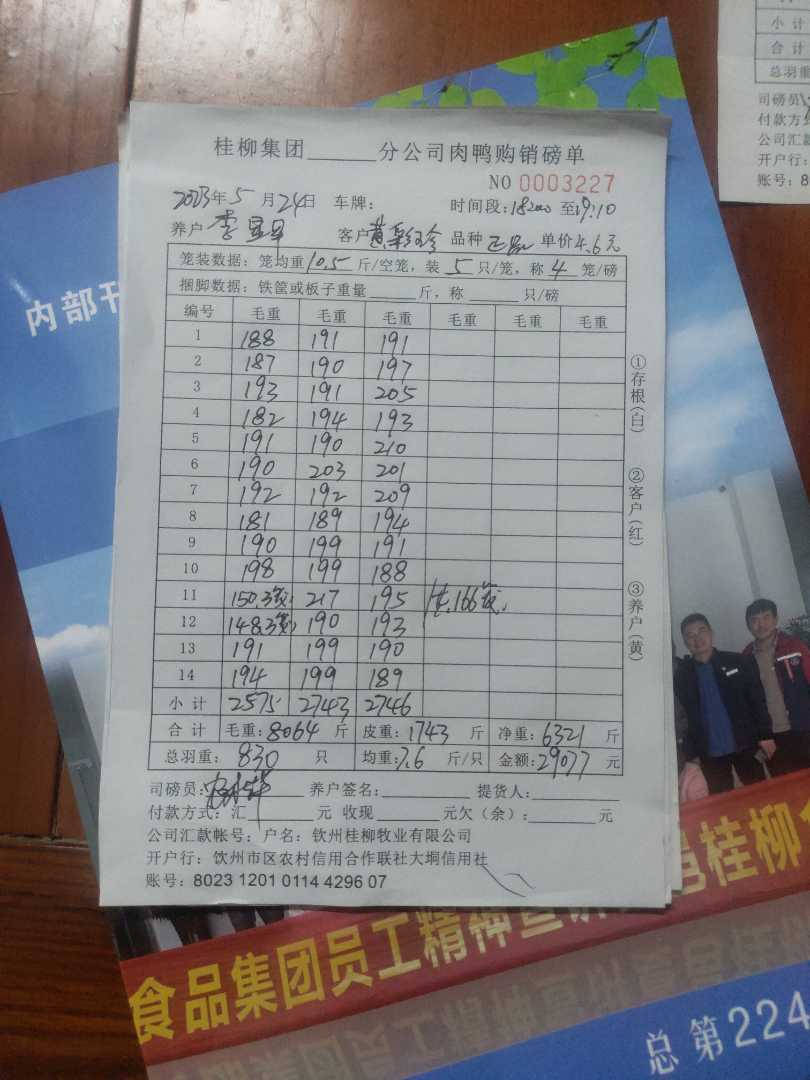 小计
合计
总羽重
司磅员
付款方式
公司汇款
开户行:
账号:8
内部刊
桂柳集团______分公司肉鸭购销磅单
NO 0003227
2023年5月24日 车牌: 时间段:18:00至19:10
养户 李 客户 黄彩 品种 正品 单价4.6元
笼装数据:笼均重10.5斤/空笼,装5只/笼,称4笼/磅
捆脚数据:铁筐或板子重量______斤,称______只/磅
编号 毛重 毛重 毛重 毛重 毛重 毛重
1 188 191 191
2 187 190 197
3 193 191 205
4 182 194 193
5 191 190 210
6 190 203 201
7 192 192 209
8 181 189 194
9 190 199 191
10 198 199 188
11 150.3笼 217 195 共166笼
12 148.3笼 190 193
13 191 199 190
14 194 199 189
小计 2575 2743 2746
合计 毛重:8064斤 皮重:1743斤 净重:6321斤
总羽重:830只 均重:7.6斤/只 金额:29077元
①存根(白) ②客户(红) ③养户(黄)
司磅员: 养户签名: 提货人:
付款方式:汇______元 收现______元欠(余):______元
公司汇款帐号:户名:钦州桂柳牧业有限公司
开户行:钦州市区农村信用合作联社大垌信用社
账号:8023 1201 0114 4296 07
桂柳食
食品集团员工精神
总第224